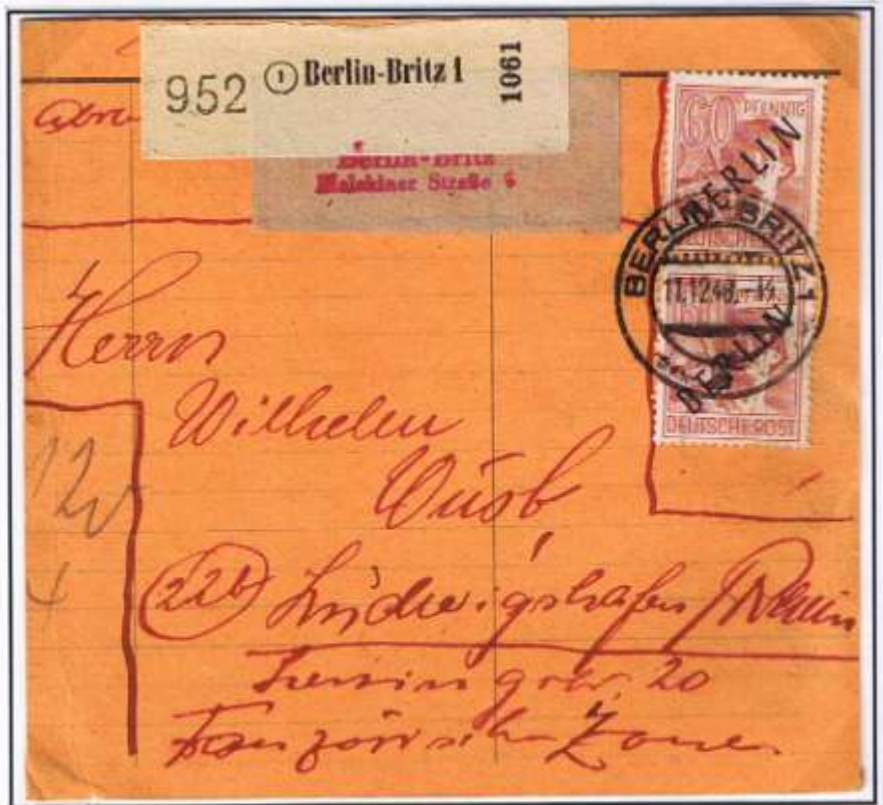 952 1 Berlin-Britz 1 1061
Berlin-Britz
Malchiner Straße
60 PFENNIG
BERLIN
BERLIN - BRITZ 1
11.12.48.-14
BERLIN
DEUTSCHE POST
Herrn
Wilhelm
(22b) Ludwigshafen / Rhein
20
Französische Zone